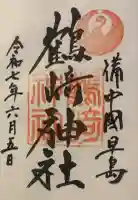 備中國早島
鶴﨑神社
令和七年六月五日